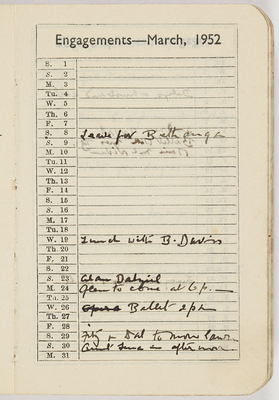 Engagements—March, 1952
S. 1
S. 2
M. 3
Tu. 4
W. 5
Th. 6
F. 7
S. 8 Leave for Bethanga
S. 9
M. 10
Tu. 11
W. 12
Th. 13
F. 14
S. 15
S. 16
M. 17
Tu. 18
W. 19 Lunch with B. Davies
Th. 20
F. 21
S. 22
S. 23 Alan Dalziel
M. 24 to come at 6 p.
Tu. 25
W. 26 Opera Ballet 2 pm
Th. 27
F. 28
S. 29 + Dal to
S. 30 in afternoon
M. 31